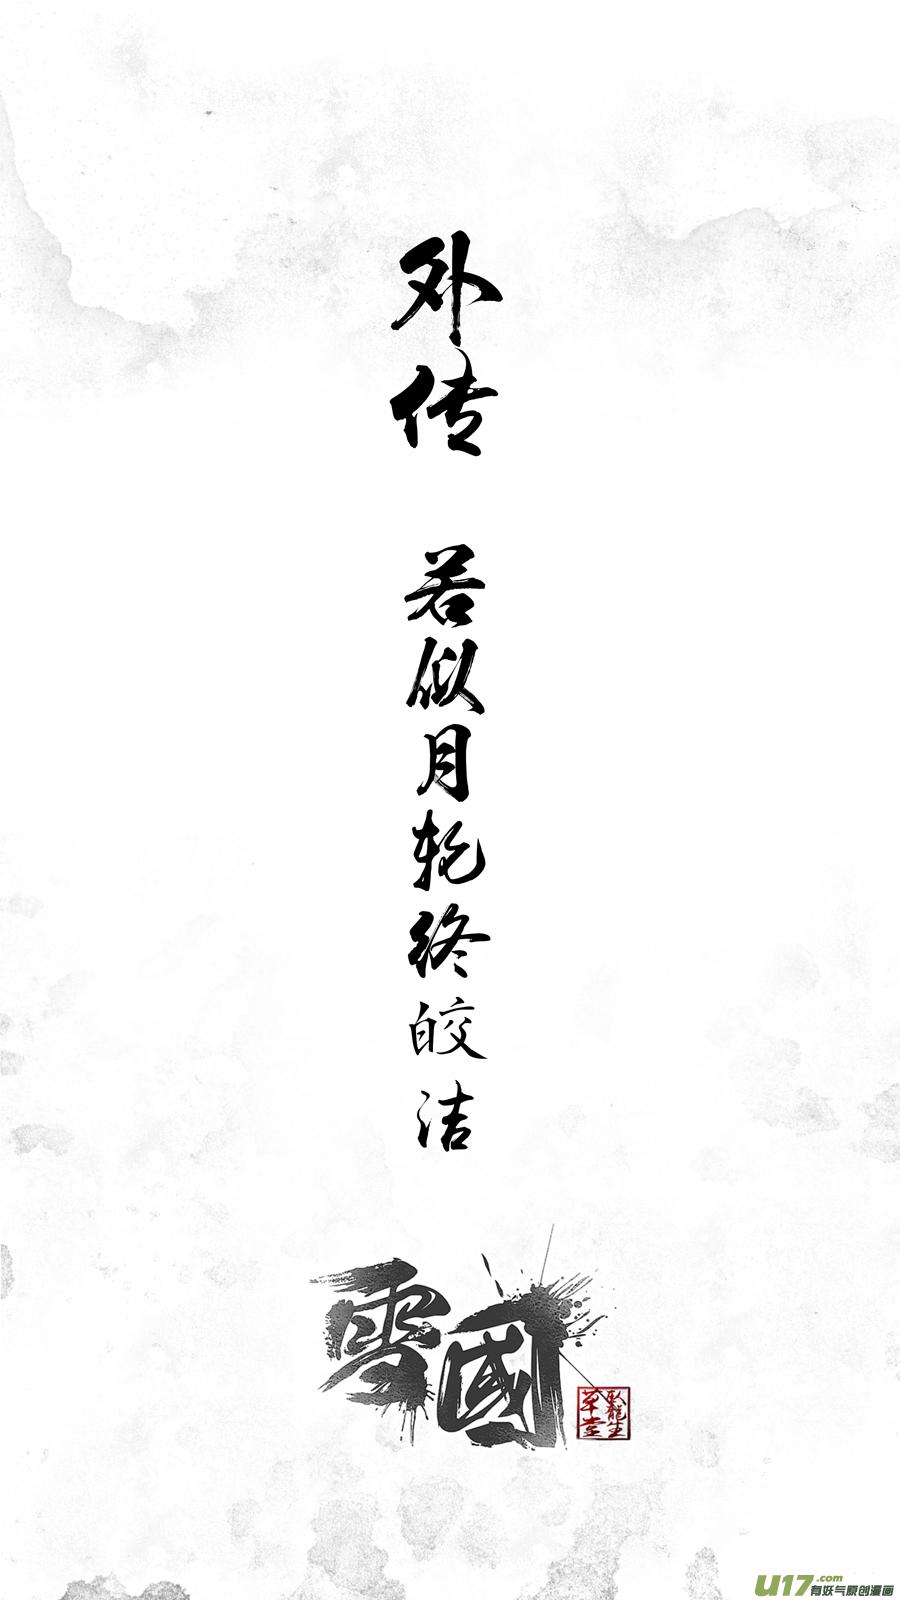 外传
若似月轮终皎洁
雪國
臥龍生
草堂
U17.com
有妖气原创漫画